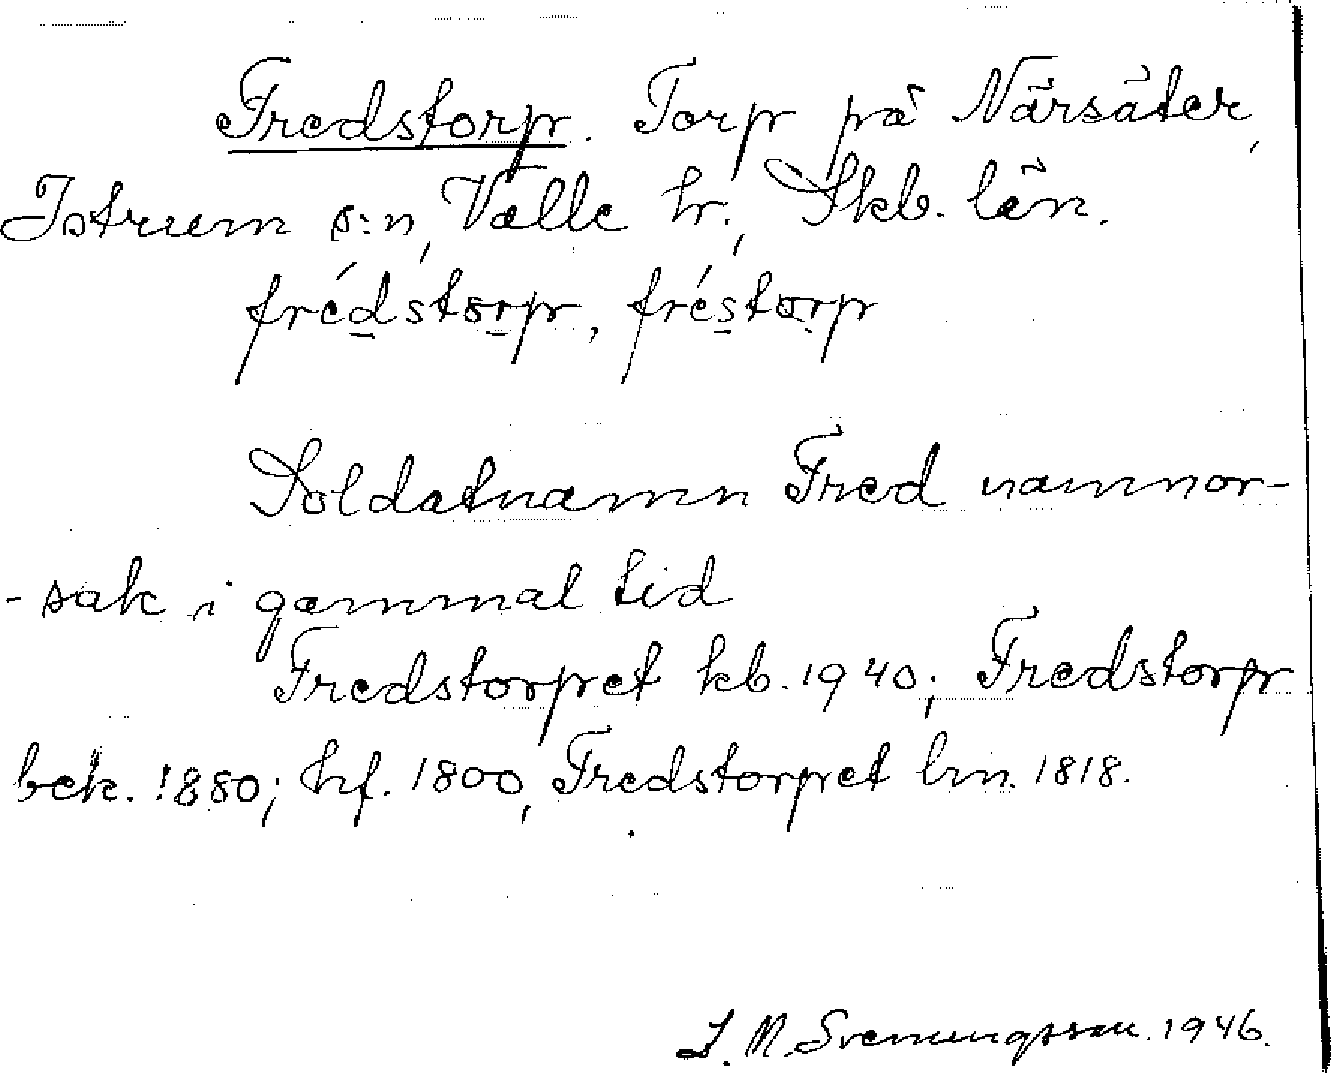 Fredstorp. Torp på Närsäter,
Istrum s:n, Valle hr., Skb. län.
frédstorp, fréstorp
Soldatnamn Fred namnor-
-sak i gammal tid
Fredstorpet kb. 1940; Fredstorp
bek. 1880; hf. 1800, Fredstorpet lm. 1818.
S. M. Svenungsson. 1946.